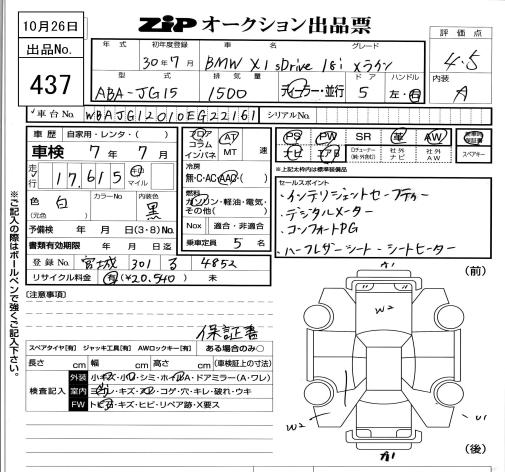 10月26日
ZiP オークション出品票
評価点
4.5
内装
A
出品No.
437
年式 初年度登録 車名 グレード
30年7月 BMW X1 sDrive 18i Xライン
型式 排気量 ドア ハンドル
ABA-JG15 1500 ディーラー・並行 5 左・右
車台No. WBAJG12010EG22161 シリアルNo.
車歴 自家用・レンタ・( )
車検 7年7月
走行 17,615 km マイル
色 白 (元色) カラーNo 内装色 黒
予備検 年 月 日(3・8)No.
書類有効期限 年 月 日迄
登録No. 宮城 301 る 4852
リサイクル料金 有(¥20,540) 未
フロア コラム インパネ AT MT 速
冷房
無・C・AC・AAC・( )
燃料
ガソリン・軽油・電気・その他( )
Nox 適合・非適合
乗車定員 5 名
PS PW SR 革 AW
ナビ エアB Dチューナー(純・外含む) 社外ナビ 社外AW
スペアキー
※上記太枠内は標準装備品
セールスポイント
・インテリジェントセーフティー
・デジタルメーター
・コンフォートPG
・ハーフレザーシート・シートヒーター
※ご記入の際はボールペンで強くご記入下さい。
(注意事項)
保証書
スペアタイヤ[有] ジャッキ工具[有] AWロックキー[有] ある場合のみ○
長さ cm 幅 cm 高さ cm (車検証上の寸法)
検査記入
外装 小キズ・小凹・シミ・ホイルA・ドアミラー(A・ワレ)
室内 ヨゴレ・キズ・スレ・コゲ・穴・キレ・破れ・ウキ
FW トビ石・キズ・ヒビ・リペア跡・X要ス
(前)
A1
W2
W2
U1
A1
(後)